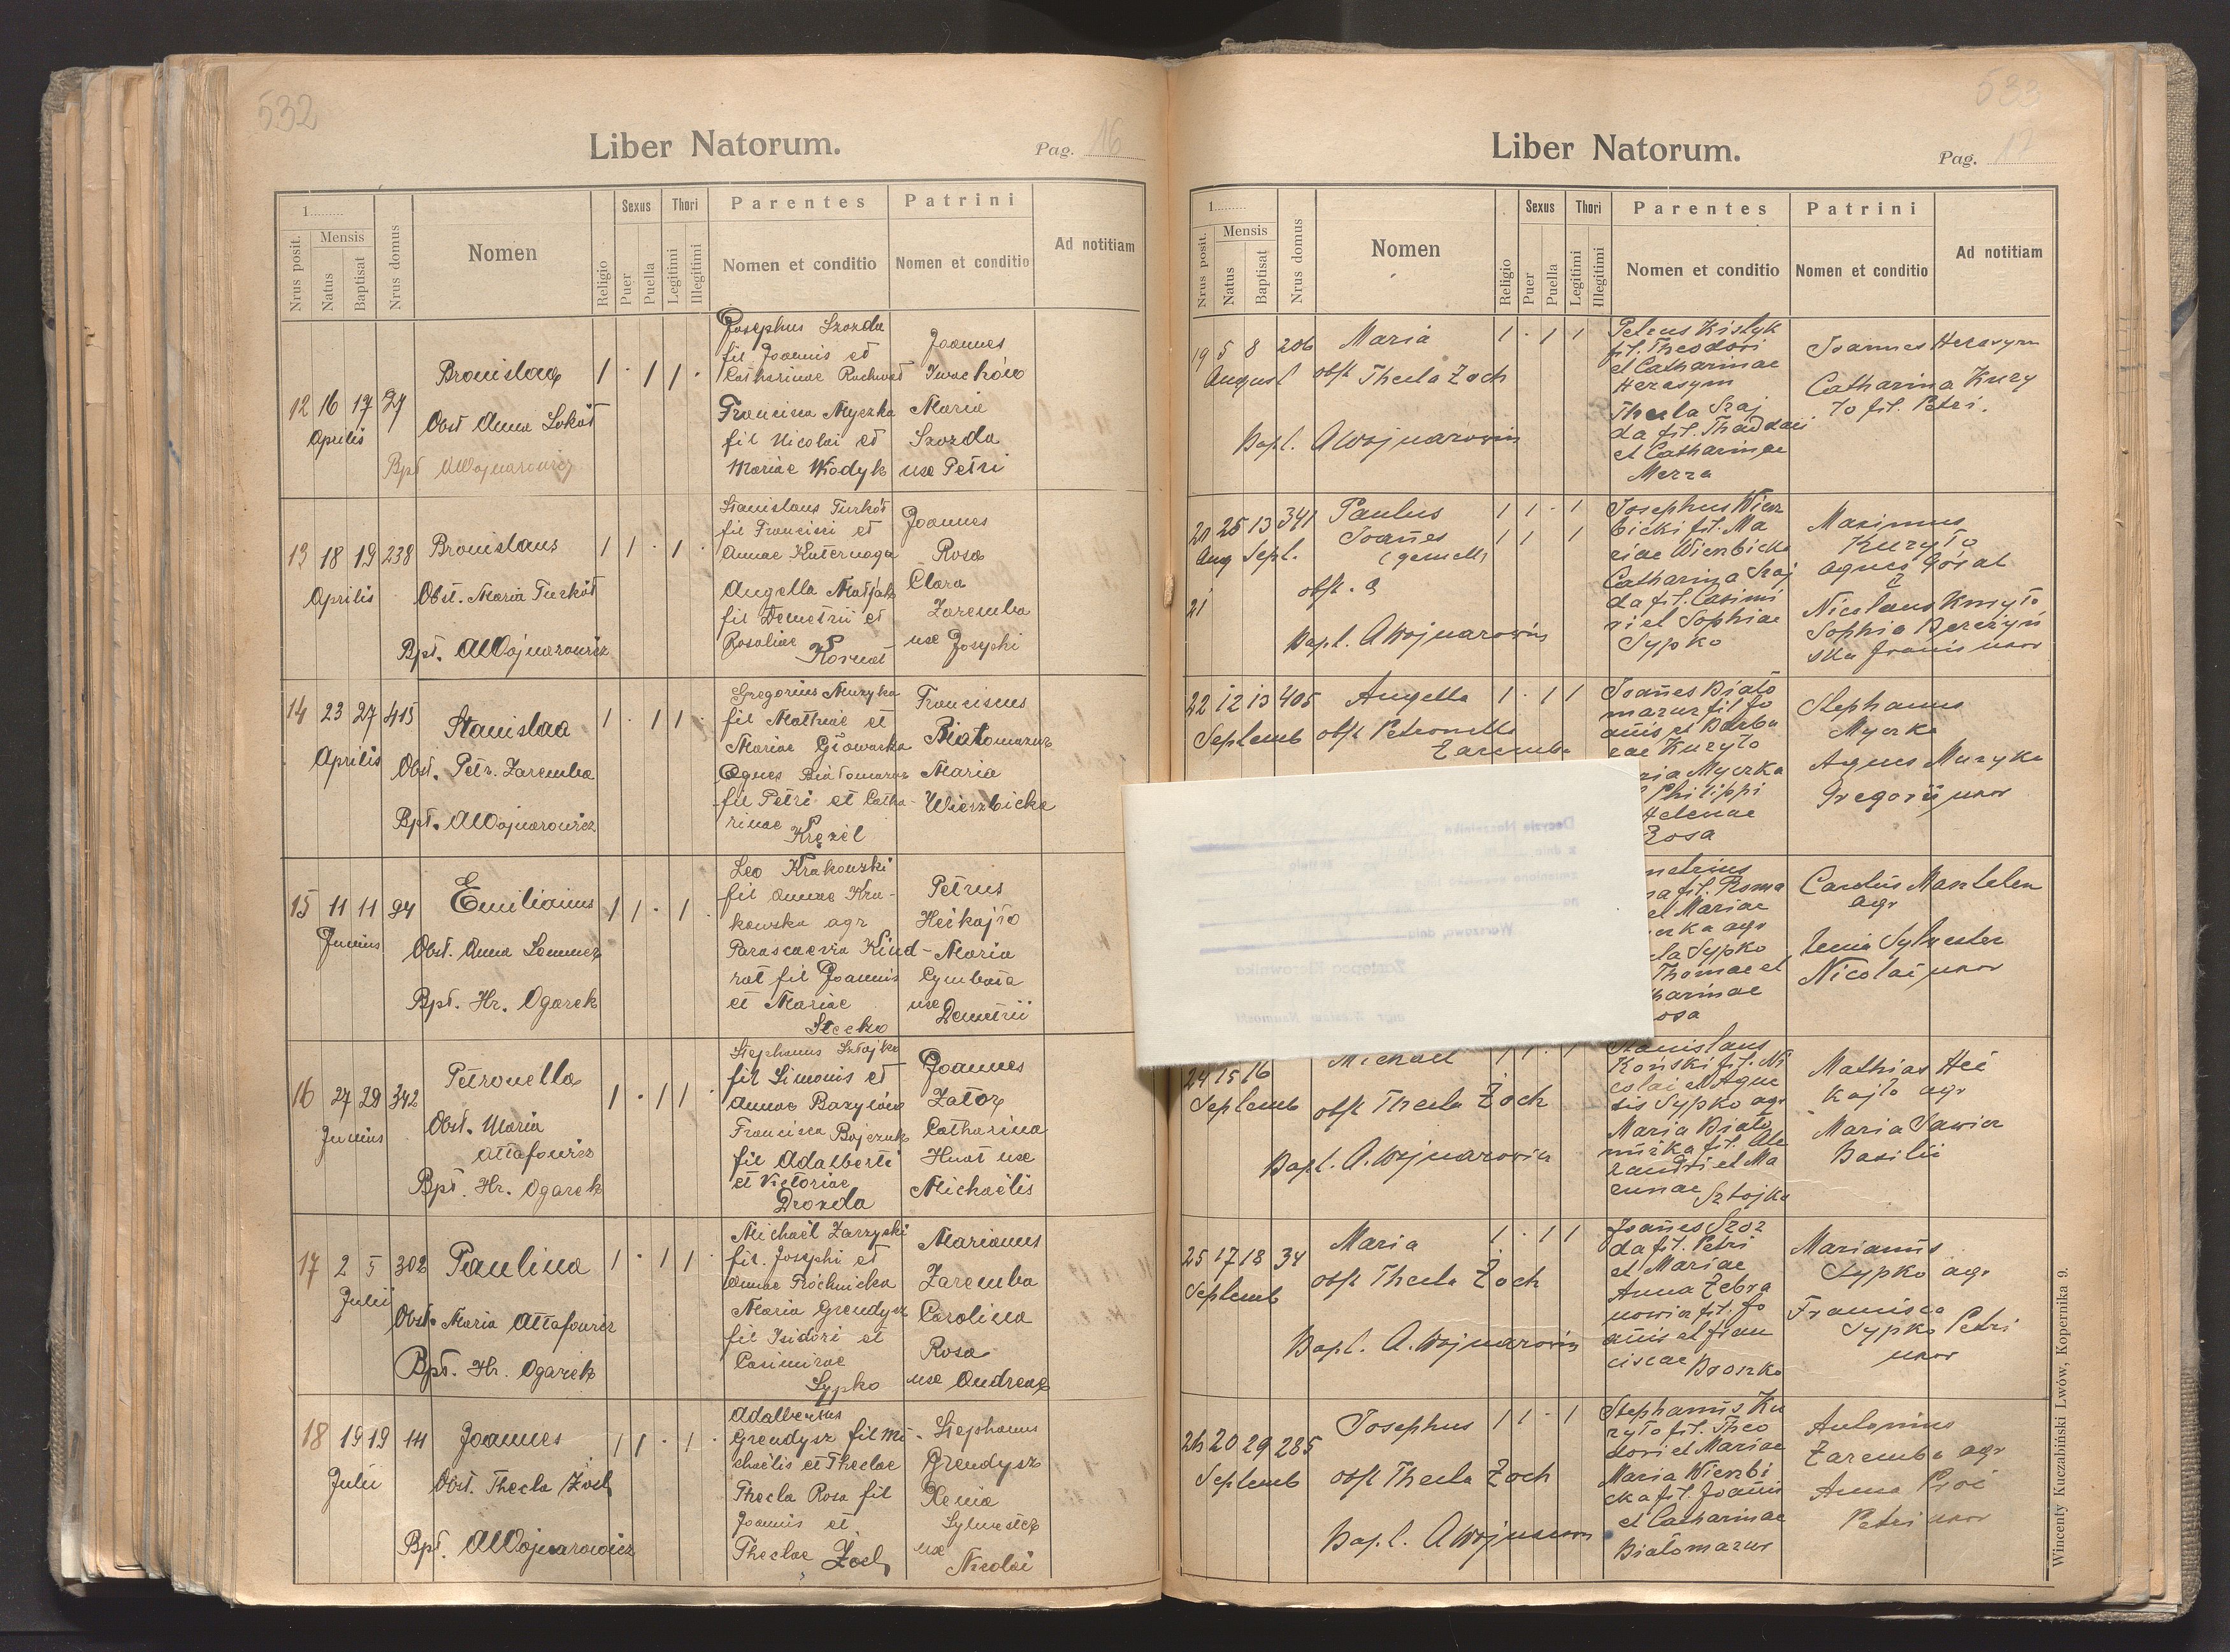 532
Liber Natorum.
Pag. 16
1
Mensis
Nrus posit.
Natus
Baptisat
Nrus domus
Nomen
Religio
Sexus
Puer
Puella
Thori
Legitimi
Illegitimi
Parentes
Nomen et conditio
Patrini
Nomen et conditio
Ad notitiam
12 16 17 27
Aprilis
Bronislava
Obst Anna
Bpt AWojnarowicz
1 · 1 1 ·
Josephus Szozda
fil Joannis et
Catharinae
Francisca Myczka
fil Nicolai et
Mariae Wodyk
Joannes
Iwachów
Maria
Szozda
uxe Petri
13 18 19 238
Aprilis
Bronislaus
Obst. Maria Turkot
Bpt. AWojnarowicz
1 1 · 1 ·
Stanislaus Turkot
fil Francisci et
Annae Kuternoga
Angella
fil Demetrii et
Rosaliae
Joannes
Rosa
Clara
Zaremba
uxe Josephi
14 23 27 415
Aprilis
Stanislaa
Obst. Petr. Zaremba
Bpt. AWojnarowicz
1 · 1 1 ·
Gregorius Muzyka
fil Mathiae et
Mariae Głowacka
Agnes Białomazur
fil Petri et Catha-
rinae
Kręzel
Franciscus
Białomazur
Maria
Wierzbicka
15 11 11 94
Junius
Emilianus
Obst. Anna
Bpt. Hr. Ogarek
1 1 · 1 ·
Leo Krakowski
fil Annae Kra-
kowska agr
Parascaevia Kind-
rat fil Joannis
et Mariae
Stecko
Petrus
Heikajło
Maria
Cymbała
uxe
Demetrii
16 27 29 342
Junius
Petronella
Obst. Maria
Attafowicz
Bpt. Hr. Ogarek
1 · 1 1 ·
Stephanus Sztojko
fil Simonis et
Annae
Francisca
fil Adalberti
et Victoriae
Drozda
Joannes
Catharina
Hnat uxe
Michaëlis
17 2 5 302
Julii
Paulina
Obst. Maria Attafowicz
Bpt. Hr. Ogarek
1 · 1 1 ·
Michaël Zarzycki
fil. Josephi et
Annae Próchnicka
Maria Grendysz
fil Isidori et
Casimirae
Sypko
Marianus
Zaremba
Carolina
Rosa
uxe Andreae
18 19 19 141
Julii
Joannes
Obst. Thecla Zoch
Bpt. AWojnarowicz
1 1 · 1 ·
Adalbertus
Grendysz fil Mi-
chaëlis et Theclae
Thecla Rosa fil
Joannis et
Theclae Zoch
Stephanus
Grendysz
Xenia
Sylwester
uxe
Nicolai
533
Liber Natorum.
Pag. 17
1
Mensis
Nrus posit.
Natus
Baptisat
Nrus domus
Nomen
Religio
Sexus
Puer
Puella
Thori
Legitimi
Illegitimi
Parentes
Nomen et conditio
Patrini
Nomen et conditio
Ad notitiam
19 5 8 206
August
Maria
obst Thecla Zoch
Bapt. AWojnarowicz
1 · 1 1
Petrus Kislyk
fil. Theodori
et Catharinae
Herasym
Thecla Szaj
da fil. Thaddaei
et Catharinae
Merza
Joannes Herasym
Catharina Kury
ło fil. Petri.
20 25 13 341
Aug Sept.
21
Paulus
Joañes
(gemelli
obst.
Bapt. AWojnarowicz
1 1 · 1
1 1 1
Josephus Wierz
bicki fil. Ma
riae Wierzbicka
Catharina Szaj
da fil. Casimi
ri et Sophiae
Sypko
Maximus
Kuryło
Agnes Góral
Nicolaus Kuryło
Sophia
ska Joañis uxor
22 12 13 405
Septemb
Angella
obst Petronella
Zaremba
1 · 1 1
Joañes Biało
mazur fil Jo
añis et Barba
rae Kuryło
ria Myczka
Philippi
Helenae
Rosa
Stephanus
Myczka
Agnes Muzyka
Gregorii uxor
metrius
fil. Roma
et Mariae
agr
Sypko
Thomae et
harinae
osa
agr
Xenia Sylwester
Nicolai uxor
24 15 16
Septemb
Michaël
obst Thecla Zoch
Bapt. A. Wojnarowicz
1 1 · 1
Stanislaus
Koński fil. Ni
colai et Agne
tis Sypko agr
Maria Biało
fil. Ale
xandri et Ma
Sztojko
Mathias Hei
kajło agr
Maria Sawicz
Basilii
25 17 18 34
Septemb
Maria
obst Thecla Zoch
Bapt. A. Wojnarowicz
1 · 1 1
Joañes Szoz
da fil. Petri
et Mariae
Anna Zebra
nowicz fil. Jo
añis et Fran
ciscae
Marianus
Sypko agr
Francisca
Sypko Petri
uxor
26 20 29 285
Septemb
Josephus
obst Thecla Zoch
Bapt. AWojnarowicz
1 1 · 1
Stephanus Ku
ryło fil. Theo
dori et Mariae
Maria Wierzbi
cka fil. Joañis
et Catharinae
Białomazur
Antonius
Zaremba agr
Anna
Petri uxor
Wincenty Kuczabiński Lwów, Kopernika 9.